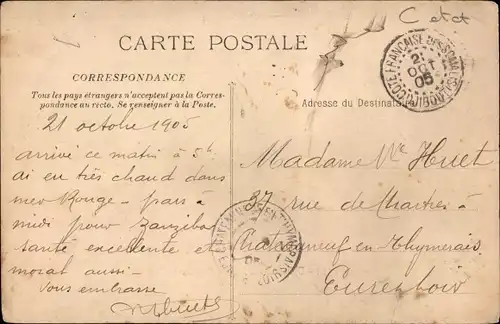 C et ct
CARTE POSTALE
CORRESPONDANCE
Tous les pays étrangers n'acceptent pas la Corres-
pondance au recto. Se renseigner à la Poste.
Adresse du Destinataire
COTE FRANÇAISE DES SOMALIS
DJIBOUTI
21
OCT
05
21 octobre 1905
arrivé ce matin à 5h
ai eu très chaud dans
mer Rouge -
midi pour Zanzibar
santé excellente et
moral aussi -
Vous embrasse
Madame Vve Huet
37 rue de Chartres
à
Chateauneuf en Thymerais
Eure et Loir